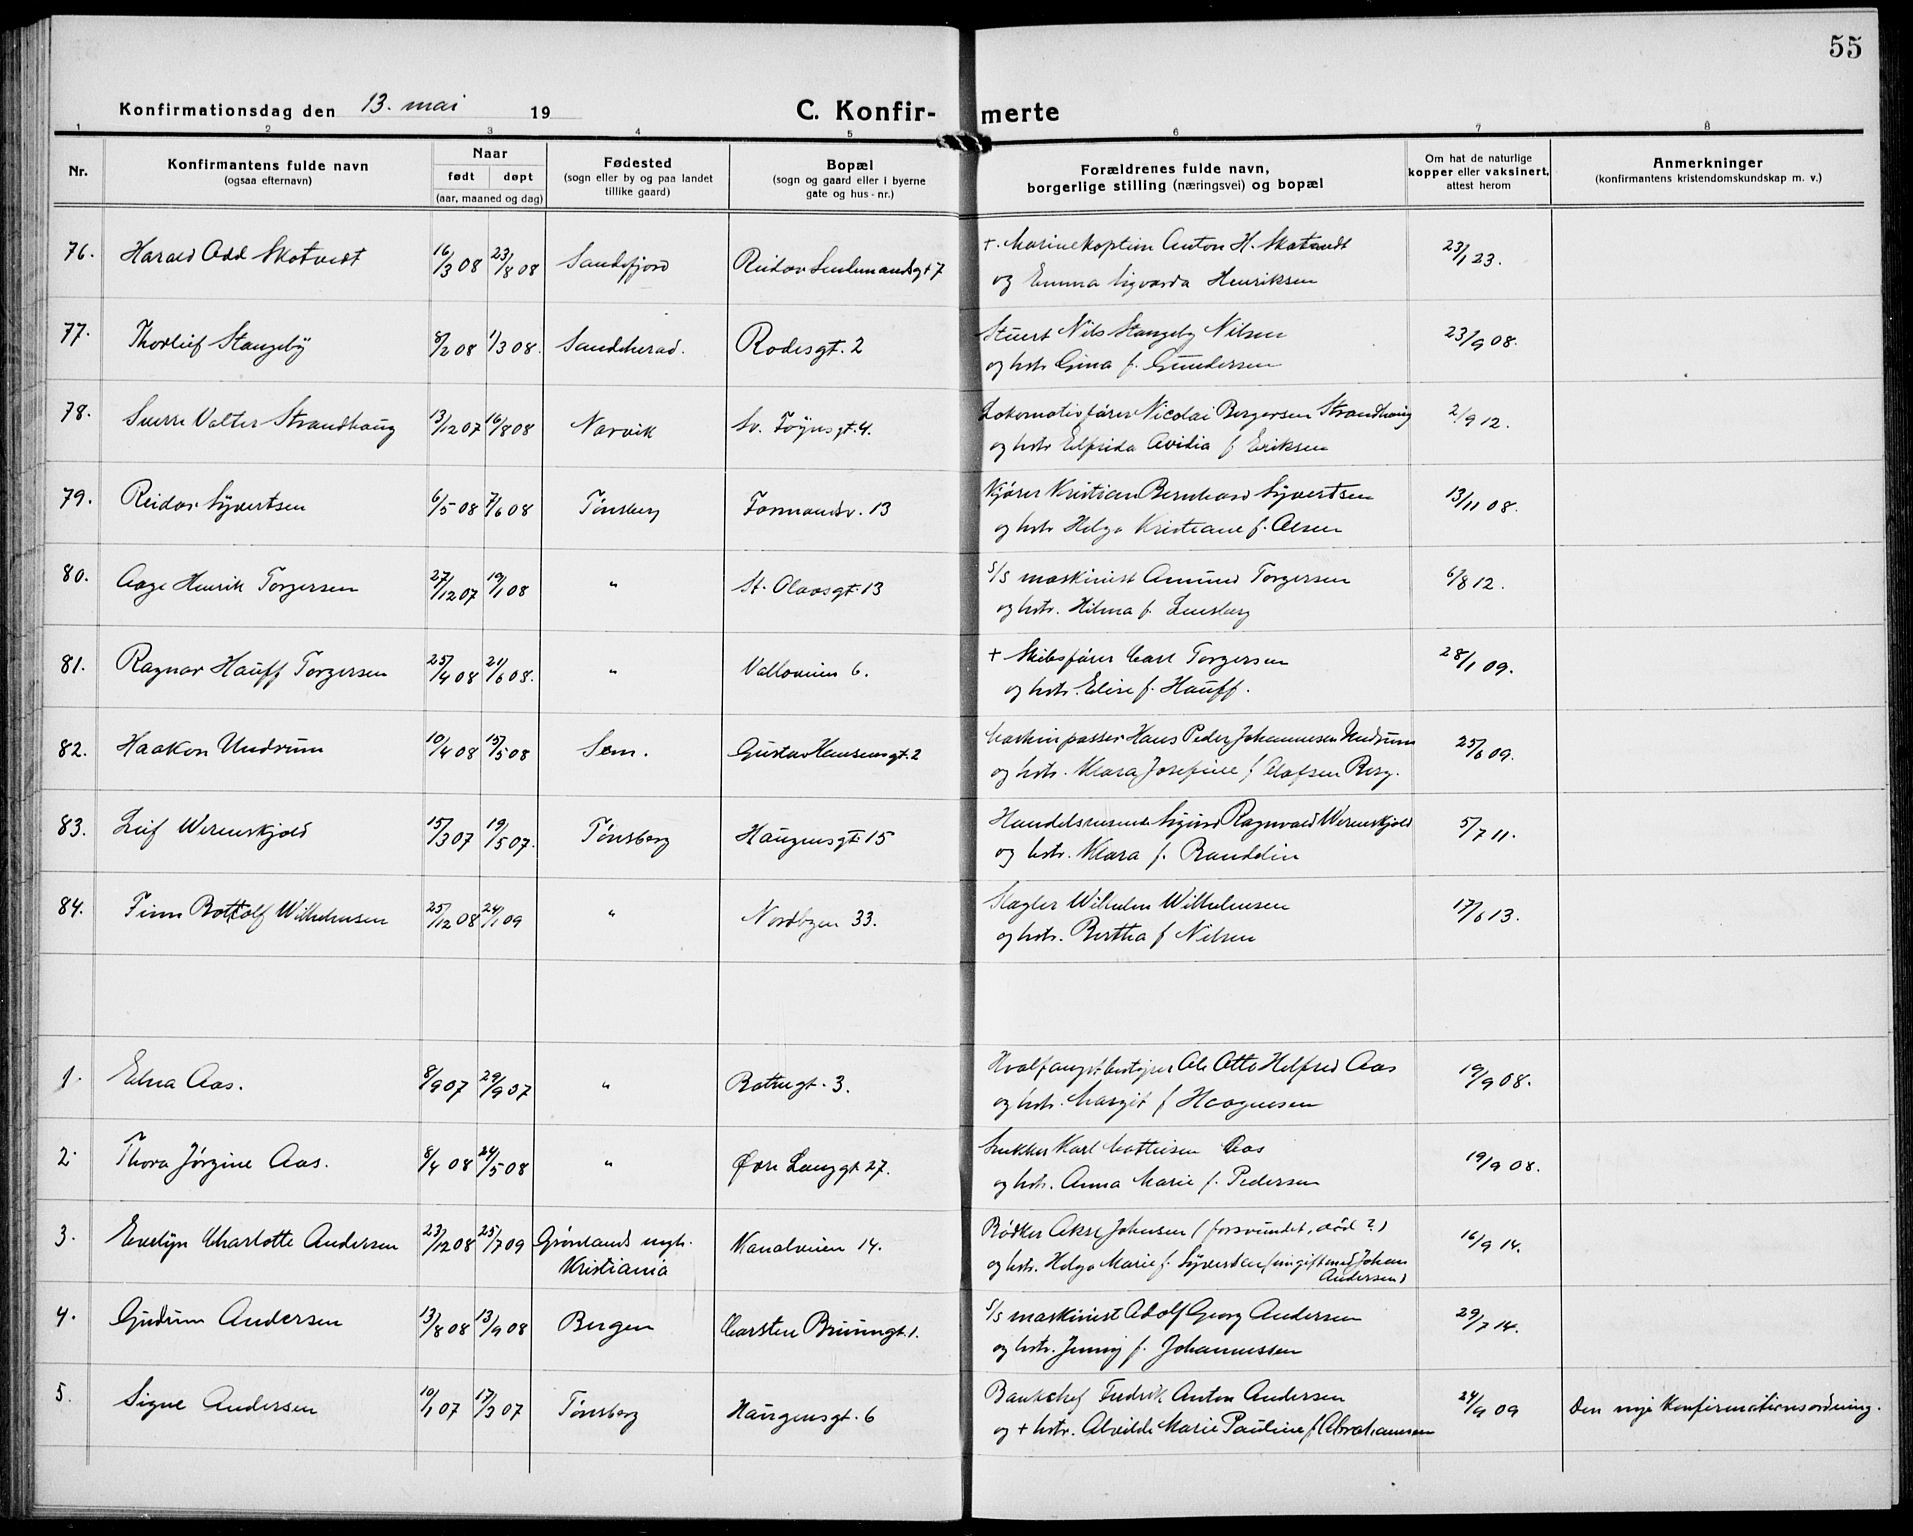 55
Konfirmationsdag den 13. mai 19
C. Konfirmerte
1 2 3 4 5 6 7 8
Nr. Konfirmantens fulde navn (ogsaa efternavn) Naar født døpt (aar, maaned og dag) Fødested (sogn eller by og paa landet tillike gaard) Bopæl (sogn og gaard eller i byerne gate og hus-nr.) Forældrenes fulde navn, borgerlige stilling (næringsvei) og bopæl Om hat de naturlige kopper eller vaksinert, attest herom Anmerkninger (konfirmantens kristendomskundskap m. v.)
76. Harald Odd Skotvedt 16/3 08 23/8 08 Sandefjord Reidar gt 7 + Marinekaptein Anton H. Skotvedt 23/1 23.
og Emma Sigvarda Henriksen
77. Thorleif Stangeby 8/2 08 1/3 08. Sandeherad. Rodesgt. 2 Stuert Nils Stangeby Nilsen 23/9 08.
og hstr Gina f. Gundersen
78. Sverre Valter Strandhaug 13/12 07 16/8 08 Narvik Sv. Føynsgt. 4. Lokomotivfører Nicolai Bergersen Strandhaug 2/9 12.
og hstr Elfrida Avidia f Eriksen
79. Reidar Syvertsen 6/5 08 7/6 08 Tønsberg Formandsv. 13 Kjører Kristian Bernhard Syvertsen 13/11 08.
og hstr Helga Kristiane f. Olsen
80. Aage Henrik Torgersen 27/12 07 19/1 08 " St. Olavsgt. 13 S/S maskinist Amund Torgersen 6/8 12.
og hstr. Hilma f. Linsberg
81. Ragnar Hauff Torgersen 25/4 08 21/6 08. " Valloveien 6. + Skibsfører Carl Torgersen 28/1 09.
og hstr. Elise f. Hauff.
82. Haakon Undrum 10/4 08 15/5 08 Sem. Gustav Hansensgt. 2 Maskinpasser Hans Peder Johannesen Undrum 25/6 09.
og hstr. Klara Josefine f Olafsen Berg.
83. Leif Werenskjold 15/3 07 19/5 07. Tønsberg Haugensgt. 15 Handelsreisende Sigurd Ragnvald Werenskjold 5/7 11.
og hstr. Klara f. Randdin
84. Finn Bottolf Wilhelmsen 25/12 08 24/1 09 " Nordbyen 33. Slagter Wilhelm Wilhelmsen 17/6 13.
og hstr. Bertha f Nilsen
1. Edna Aas. 8/9 07 29/9 07 " Batterigt. 3. Hvalfangstbestyrer Ole Otto Helfred Aas 19/9 08.
og hstr. Margit f Haagensen
2. Thora Jørgine Aas. 8/4 08 24/5 08 " Øvre Langgt. 27. Snekker Karl Mathisen Aas 19/9 08.
og hstr. Anna Marie f. Pedersen
3. Evelyn Charlotte Andersen 23/12 08 25/7 09 Grønlands mgh. Kanalveien 14. Bødker Aksel Johnsen (forsvundet, død?) 16/9 14.
Kristiania og hstr. Helga Marie f. Syvertsen (nu gift med Johan Andersen)
4. Gudrun Andersen 13/8 08 13/9 08 Bergen Carsten Bruungt. 1. S/S maskinist Adolf Georg Andersen 29/7 14.
og hstr. Jenny f. Johannessen
5. Signe Andersen 10/1 07 17/3 07 Tønsberg Haugensgt. 6 Bankchef Fredrik Anton Andersen 24/9 09 Den nye Konfirmationsordning.
og + hstr. Alvilde Marie Pauline f Abrahamsen